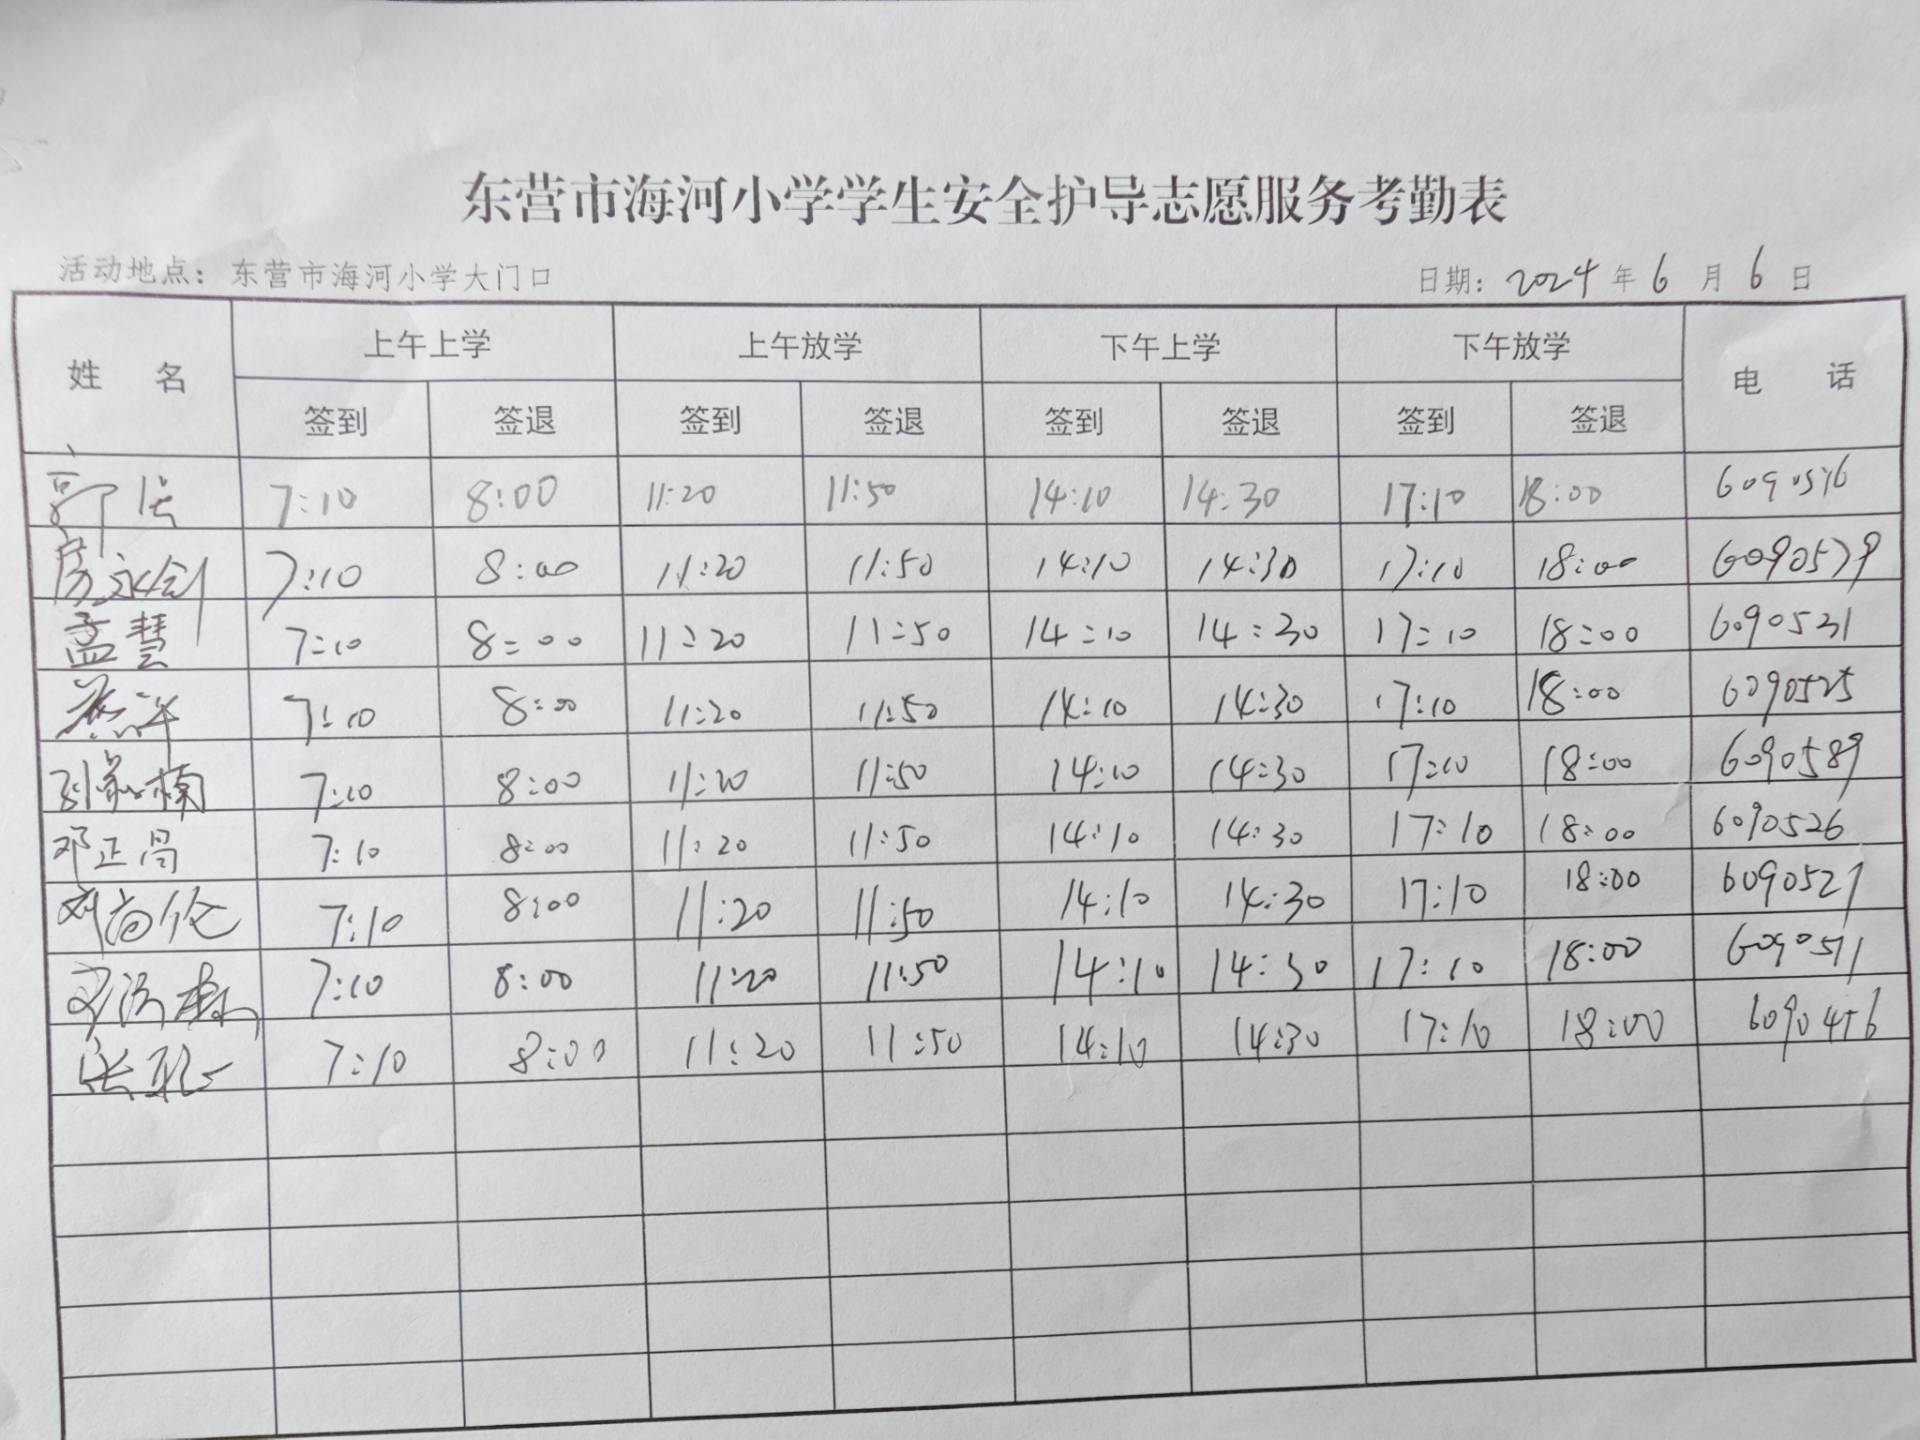 东营市海河小学学生安全护导志愿服务考勤表
活动地点：东营市海河小学大门口 日期：2024年6月6日
姓名 上午上学 上午放学 下午上学 下午放学 电话
签到 签退 签到 签退 签到 签退 签到 签退
7:10 8:00 11:20 11:50 14:10 14:30 17:10 18:00
房永剑 7:10 8:00 11:20 11:50 14:10 14:30 17:10 18:00 6090579
孟慧 7:10 8:00 11:20 11:50 14:10 14:30 17:10 18:00 6090531
7:10 8:00 11:20 11:50 14:10 14:30 17:10 18:00 6090525
7:10 8:00 11:20 11:50 14:10 14:30 17:10 18:00 6090589
邓正昌 7:10 8:00 11:20 11:50 14:10 14:30 17:10 18:00 6090526
刘尚伦 7:10 8:00 11:20 11:50 14:10 14:30 17:10 18:00
7:10 8:00 11:20 11:50 14:10 14:30 17:10 18:00 6090511
7:10 8:00 11:20 11:50 14:10 14:30 17:10 18:00